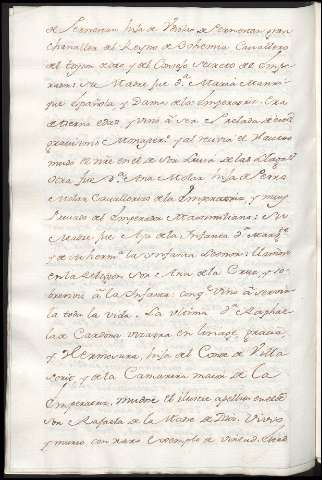 de Pernestan hija de Uratis de Pernestan gran
Chanciller del Reyno de Bohemia Cavallero
del toyson doro y del Consejo Secreto del Empe
rador: Su Madre fue D.ª Maria Manri
que española y Dama de la Emperatriz. Era
de tierna edad y vino a ser Prelada de este
gravissimo Monasterio y al recivir el Havito
mudo el nombre en el de Sor Luisa de las Llagas
Otra fue D.ª Ana Molar hija de Pedro
Molar Cavallerizo de la Emperatriz y muy
privado del Emperador Maximiliano: Su
Madre fue Aya de la Infanta D.ª Marg.ta
y de su herm.ª la Infanta Leonor: llamose
en la Religion Sor Ana de la Cruz y so
brevivio â la Infanta: con q.n vino â servirla
toda la vida. La ultima D.ª Raphae
la de Cardona vizarra en linage, gracia
y Hermosura, hija del Conde de Villa
soris y de la Camarera maior de la
Emperatriz, mudose el ilustre apellido en el de
Sor Rafaela de la Madre de Dios. Vivio
y murio con raro exemplo de virtud. Llebo